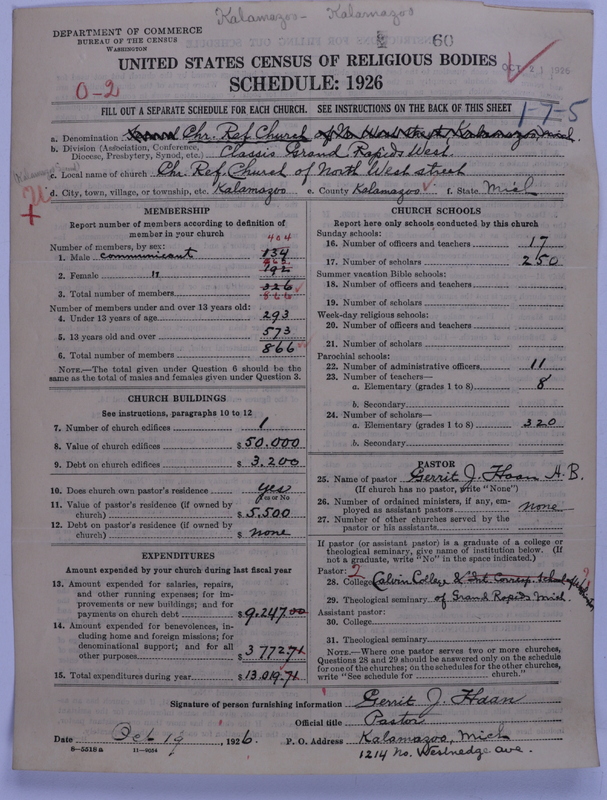 Kalamazoo - Kalamazoo
DEPARTMENT OF COMMERCE
BUREAU OF THE CENSUS
WASHINGTON
60
UNITED STATES CENSUS OF RELIGIOUS BODIES
OCT 21 1926
SCHEDULE: 1926
0-2
FILL OUT A SEPARATE SCHEDULE FOR EACH CHURCH. SEE INSTRUCTIONS ON THE BACK OF THIS SHEET
1-7-5
a. Denomination Chr. Ref Church of No West street, Kalamazoo, Mich.
b. Division (Association, Conference, Diocese, Presbytery, Synod, etc.) Classis Grand Rapids West.
c. Local name of church Chr Ref. Church of North West street
d. City, town, village, or township, etc. Kalamazoo e. County Kalamazoo f. State Mich
MEMBERSHIP
Report number of members according to definition of member in your church
Number of members, by sex:
404
1. Male communicant 134
2. Female " 192
3. Total number of members 326
866
Number of members under and over 13 years old:
4. Under 13 years of age 293
5. 13 years old and over 573
6. Total number of members 866
NOTE.—The total given under Question 6 should be the same as the total of males and females given under Question 3.
CHURCH BUILDINGS
See instructions, paragraphs 10 to 12
7. Number of church edifices 1
8. Value of church edifices $50.000
9. Debt on church edifices $ 3.200
10. Does church own pastor's residence yes
Yes or No
11. Value of pastor's residence (if owned by church) $5.500
12. Debt on pastor's residence (if owned by church) $ none
EXPENDITURES
Amount expended by your church during last fiscal year
13. Amount expended for salaries, repairs, and other running expenses; for improvements or new buildings; and for payments on church debt $9.247.00
14. Amount expended for benevolences, including home and foreign missions; for denominational support; and for all other purposes $3 772 71
15. Total expenditures during year $13.019.71
CHURCH SCHOOLS
Report here only schools conducted by this church
Sunday schools:
16. Number of officers and teachers 17
17. Number of scholars 250
Summer vacation Bible schools:
18. Number of officers and teachers
19. Number of scholars
Week-day religious schools:
20. Number of officers and teachers
21. Number of scholars
Parochial schools:
22. Number of administrative officers 11
23. Number of teachers—
a. Elementary (grades 1 to 8) 8
b. Secondary
24. Number of scholars—
a. Elementary (grades 1 to 8) 320
b. Secondary
PASTOR
25. Name of pastor Gerrit J. Haan A.B.
(If church has no pastor, write "None")
26. Number of ordained ministers, if any, employed as assistant pastors none
27. Number of other churches served by the pastor or his assistants
If pastor (or assistant pastor) is a graduate of a college or theological seminary, give name of institution below. (If not a graduate, write "No" in the space indicated.)
Pastor:
28. College Calvin College & Int. Corresp. School of
29. Theological seminary of Grand Rapids Mich.
Assistant pastor:
30. College
31. Theological seminary
NOTE.—Where one pastor serves two or more churches, Questions 28 and 29 should be answered only on the schedule for one of the churches; on the schedules for the other churches, write "See schedule for church."
Signature of person furnishing information Gerrit J. Haan
Official title Pastor
Date Oct 19, 1926. P. O. Address Kalamazoo, Mich
1214 No. Westnedge ave.
8—5518a 11—9054